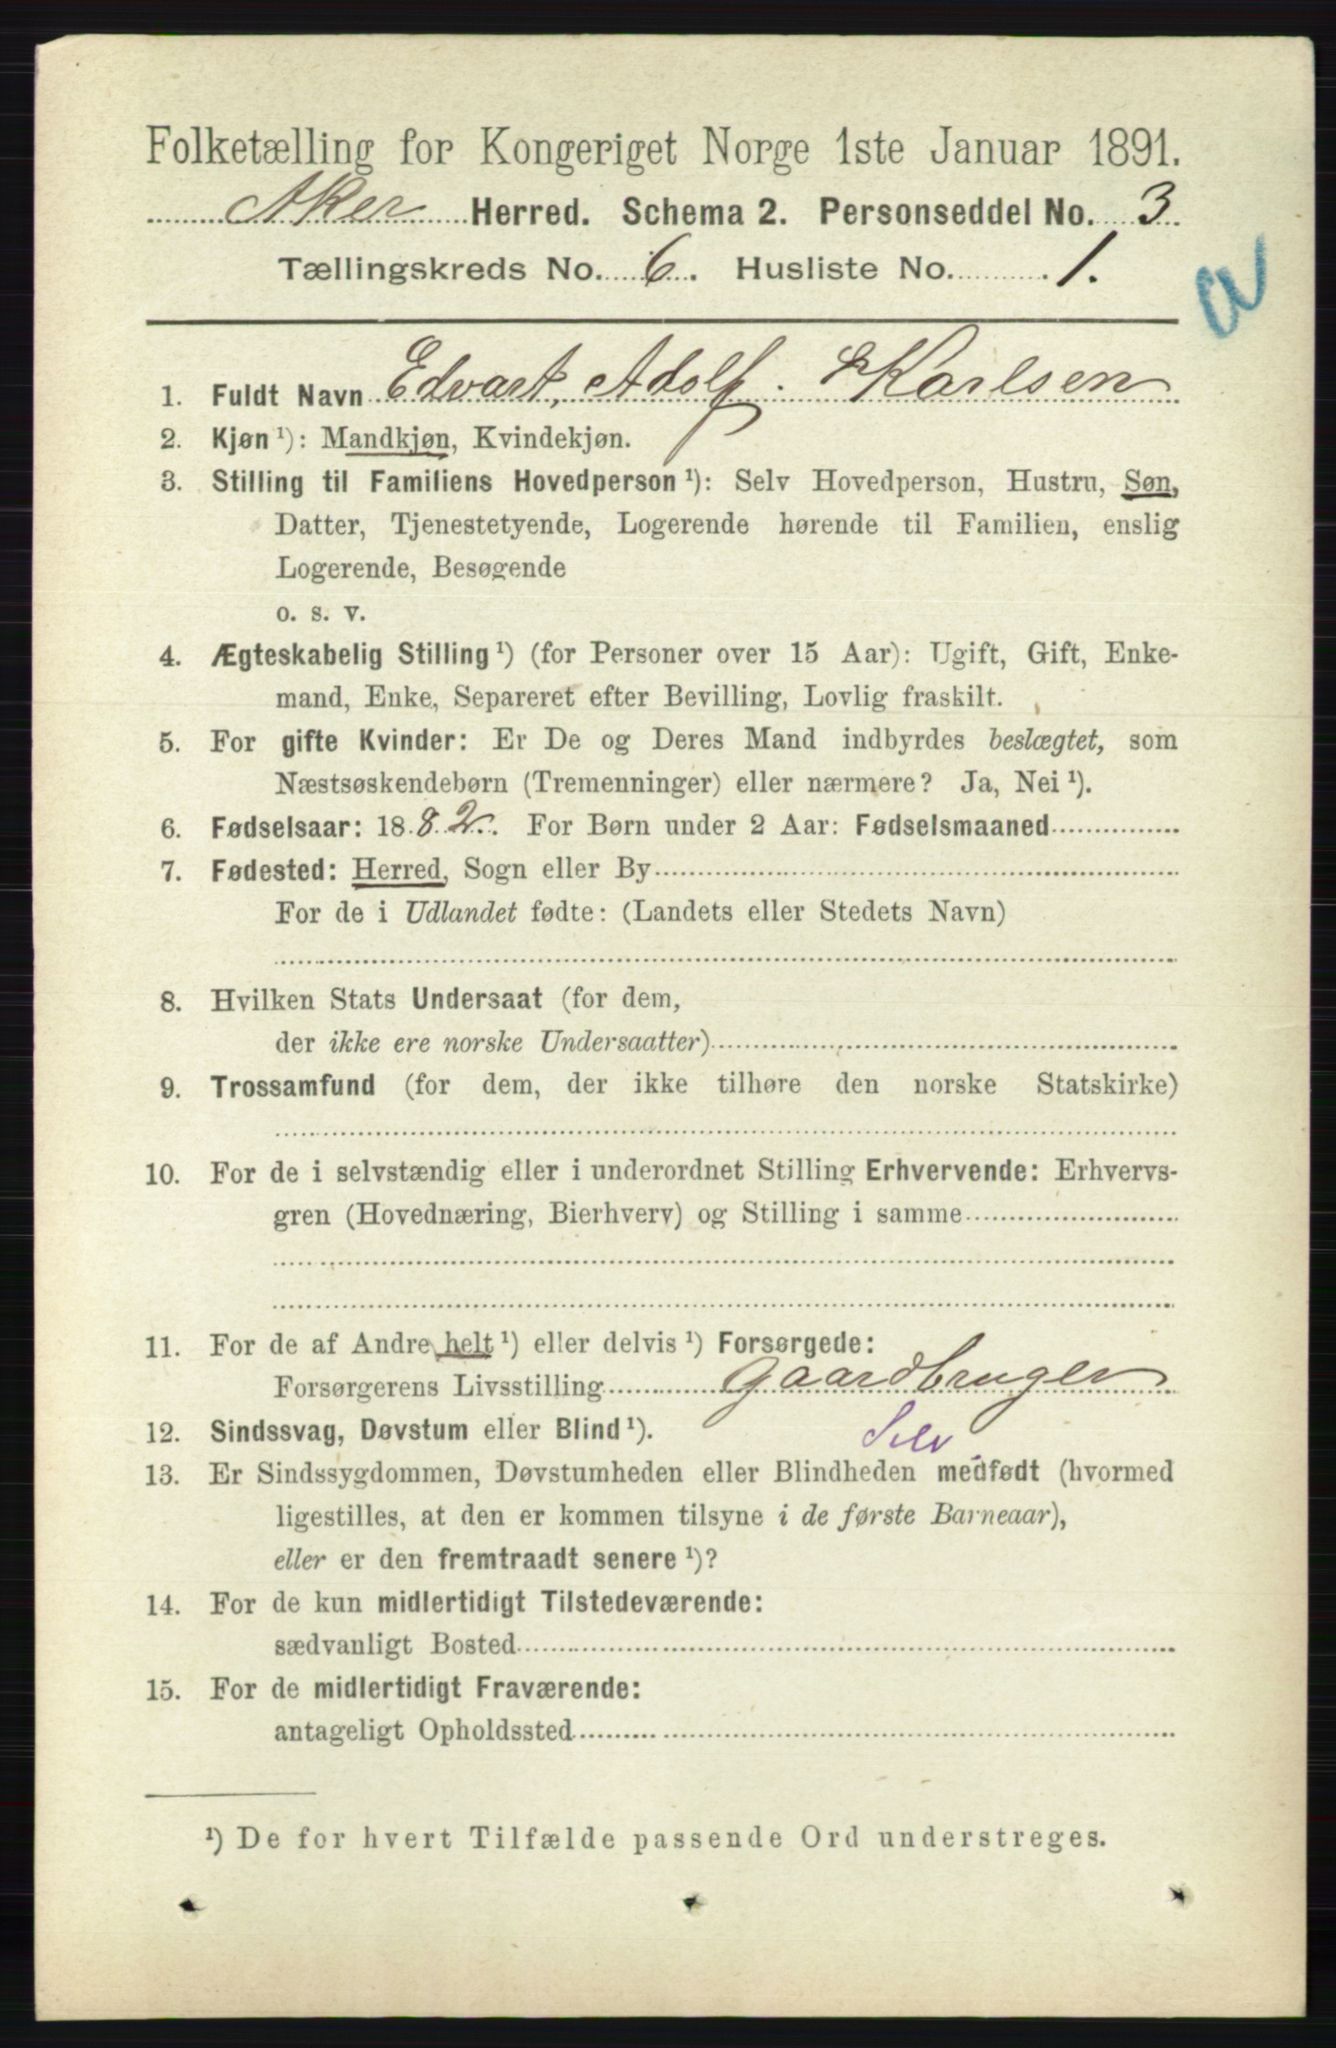 Folketælling for Kongeriget Norge 1ste Januar 1891.
Aker Herred. Schema 2. Personseddel No. 3
Tællingskreds No. 6. Husliste No. 1.
a
1. Fuldt Navn Edvart, Adolf. Karlsen
2. Kjøn ¹): Mandkjøn, Kvindekjøn.
3. Stilling til Familiens Hovedperson ¹): Selv Hovedperson, Hustru, Søn,
Datter, Tjenestetyende, Logerende hørende til Familien, enslig
Logerende, Besøgende
o. s. v.
4. Ægteskabelig Stilling ¹) (for Personer over 15 Aar): Ugift, Gift, Enke-
mand, Enke, Separeret efter Bevilling, Lovlig fraskilt.
5. For gifte Kvinder: Er De og Deres Mand indbyrdes beslægtet, som
Næstsøskendebørn (Tremenninger) eller nærmere? Ja, Nei ¹).
6. Fødselsaar: 1882. For Børn under 2 Aar: Fødselsmaaned
7. Fødested: Herred, Sogn eller By
For de i Udlandet fødte: (Landets eller Stedets Navn)
8. Hvilken Stats Undersaat (for dem,
der ikke ere norske Undersaatter)
9. Trossamfund (for dem, der ikke tilhøre den norske Statskirke)
10. For de i selvstændig eller i underordnet Stilling Erhvervende: Erhvervs-
gren (Hovednæring, Bierhverv) og Stilling i samme
11. For de af Andre helt ¹) eller delvis ¹) Forsørgede:
Forsørgerens Livsstilling Gaardbruger
12. Sindssvag, Døvstum eller Blind ¹).
Selv
13. Er Sindssygdommen, Døvstumheden eller Blindheden medfødt (hvormed
ligestilles, at den er kommen tilsyne i de første Barneaar),
eller er den fremtraadt senere ¹)?
14. For de kun midlertidigt Tilstedeværende:
sædvanligt Bosted
15. For de midlertidigt Fraværende:
antageligt Opholdssted
¹) De for hvert Tilfælde passende Ord understreges.